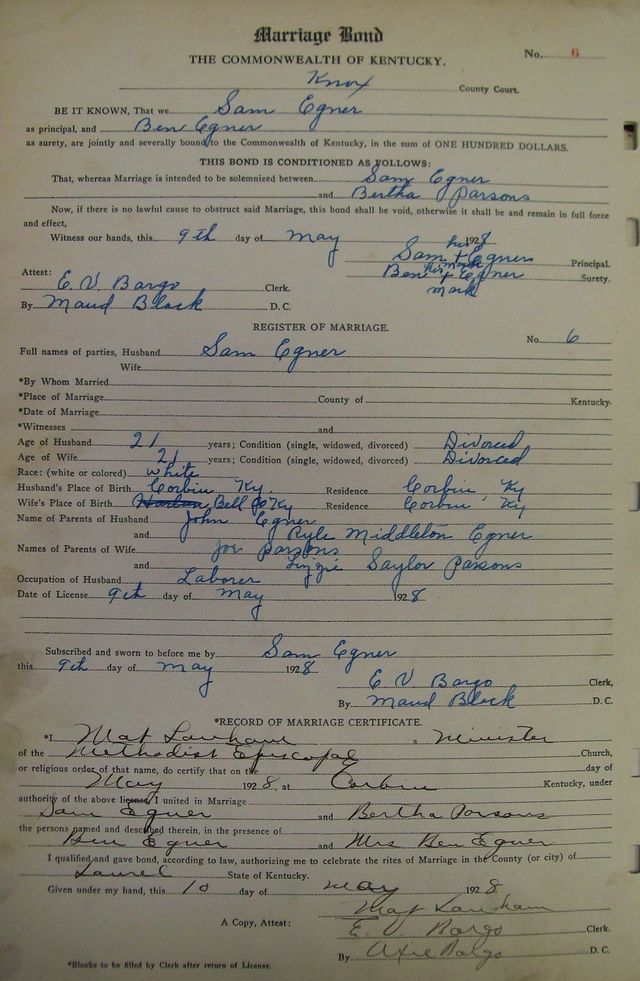 Marriage Bond
THE COMMONWEALTH OF KENTUCKY.
No. 6
Knox County Court.
BE IT KNOWN, That we Sam Egner
as principal, and Ben Egner
as surety, are jointly and severally bound to the Commonwealth of Kentucky, in the sum of ONE HUNDRED DOLLARS.
THIS BOND IS CONDITIONED AS FOLLOWS:
That, whereas Marriage is intended to be solemnized between Sam Egner
and Bertha Parsons
Now, if there is no lawful cause to obstruct said Marriage, this bond shall be void, otherwise it shall be and remain in full force
and effect,
Witness our hands, this 9th day of May 1928
Sam his + mark Egner Principal.
Attest: Ben his + mark Egner Surety.
E. V. Bargo Clerk.
By Maud Black D. C.
REGISTER OF MARRIAGE.
No. 6
Full names of parties, Husband Sam Egner
Wife
*By Whom Married
*Place of Marriage County of Kentucky.
*Date of Marriage
*Witnesses and
Age of Husband 21 years; Condition (single, widowed, divorced) Divorced
Age of Wife 21 years; Condition (single, widowed, divorced) Divorced
Race: (white or colored) White
Husband's Place of Birth Corbin Ky. Residence Corbin, Ky
Wife's Place of Birth Harlan Bell Co Ky Residence Corbin Ky
Name of Parents of Husband John Egner
and Ryle Middleton Egner
Names of Parents of Wife Joe Parsons
and Lizzie Saylor Parsons
Occupation of Husband Laborer
Date of License 9th day of May 1928
Subscribed and sworn to before me by Sam Egner
this 9th day of May 1928
E V Bargo Clerk,
By Maud Black D. C.
*RECORD OF MARRIAGE CERTIFICATE.
*I Mat Lanham a Minister
of the Methodist Episcopal Church,
or religious order of that name, do certify that on the day of
May 1928, at Corbin Kentucky, under
authority of the above license, I united in Marriage
Sam Egner and Bertha Parsons
the persons named and described therein, in the presence of
Ben Egner and Mrs Ben Egner
I qualified and gave bond, according to law, authorizing me to celebrate the rites of Marriage in the County (or city) of
Laurel State of Kentucky.
Given under my hand, this 10 day of May 1928
Mat Lanham
A Copy, Attest: E. V. Bargo Clerk.
By Bargo D. C.
*Blanks to be filled by Clerk after return of License.